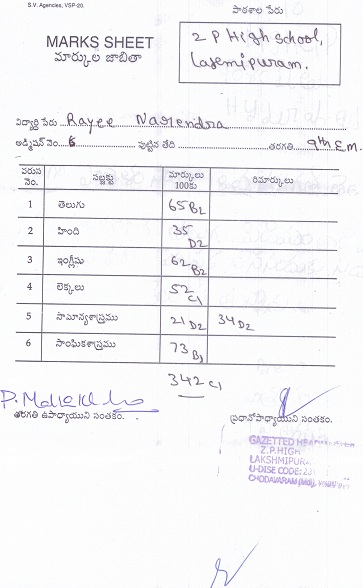 S.V. Agencies, VSP-20.
పాఠశాల పేరు
MARKS SHEET
మార్కుల జాబితా
Z P High School,
Laxmipuram.
విద్యార్థి పేరు Rayee Narendra
అడ్మిషన్ నెం. 6 పుట్టిన తేది తరగతి 9th E.M.
వరుస నెం. సబ్జక్టు మార్కులు 100కు రిమార్కులు
1 తెలుగు 65 B2
2 హింది 35 D2
3 ఇంగ్లీషు 62 B2
4 లెక్కలు 52 C1
5 సామాన్యశాస్త్రము 21 D2 34 D2
6 సాంఘికశాస్త్రము 73 B1
342 C1
తరగతి ఉపాధ్యాయుని సంతకం. ప్రధానోపాధ్యాయుని సంతకం.
GAZETTED
Z.P.HIGH
LAKSHMIPUR
U-DISE CODE:
CHODAVARAM